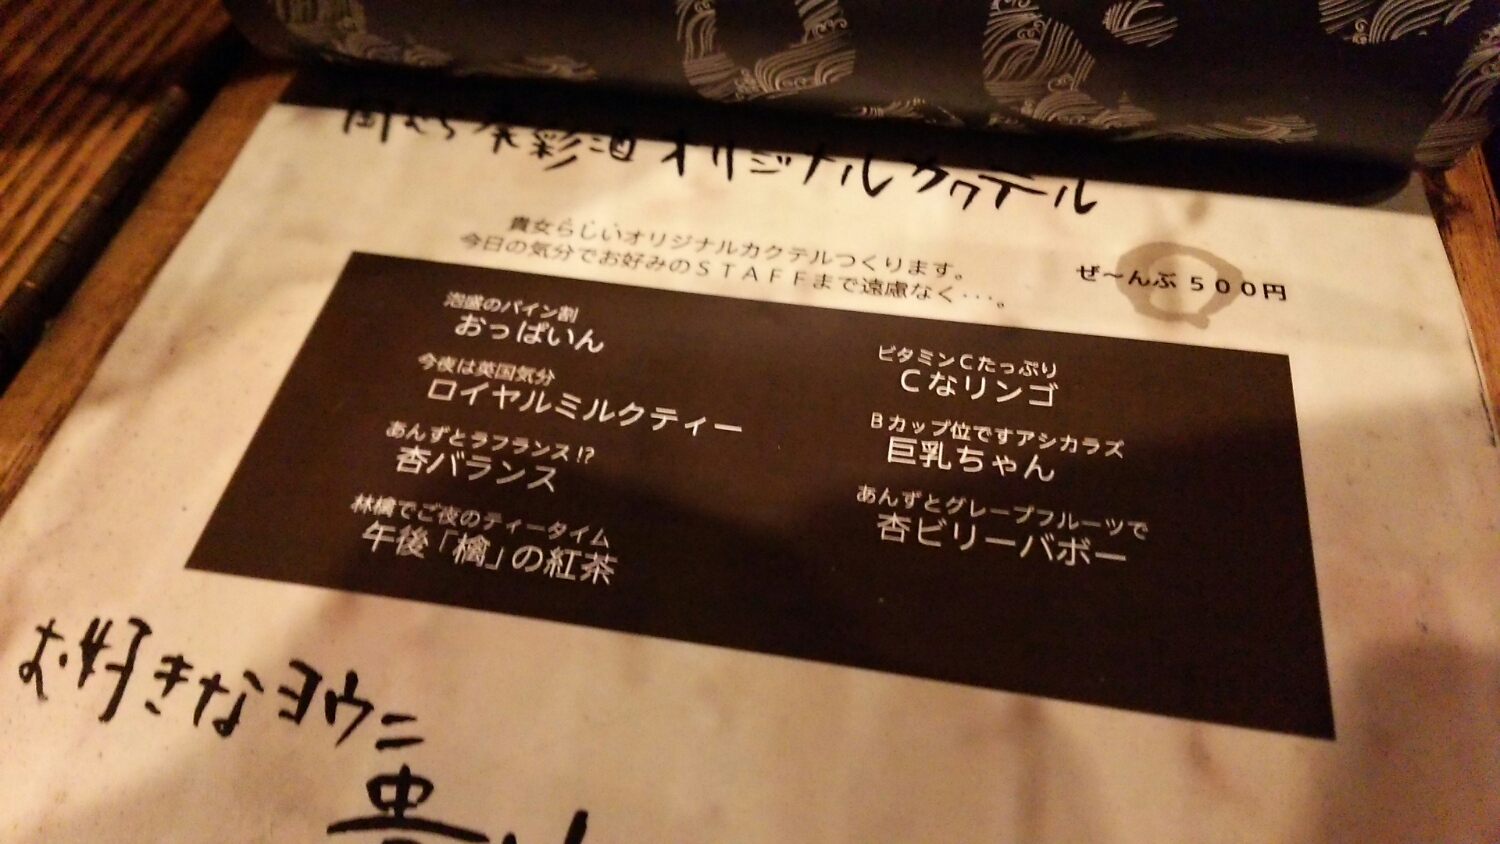 彩酒 オリジナルカクテル
貴女らしいオリジナルカクテルつくります。
今日の気分でお好みのＳＴＡＦＦまで遠慮なく･･･。
ぜ～んぶ ５００円
泡盛のパイン割
おっぱいん
今夜は英国気分
ロイヤルミルクティー
あんずとラフランス!?
杏バランス
林檎でご夜のティータイム
午後「檎」の紅茶
ビタミンＣたっぷり
Ｃなリンゴ
Ｂカップ位ですアシカラズ
巨乳ちゃん
あんずとグレープフルーツで
杏ビリーバボー
お好きなヨウニ